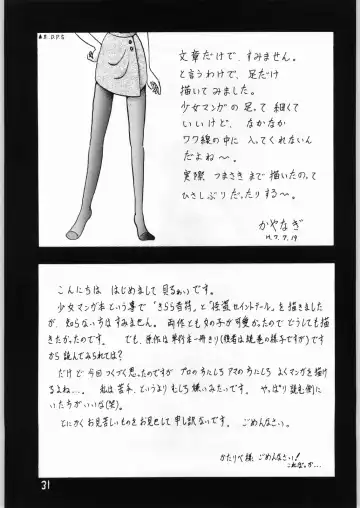 文章だけで、すみません。
と言うわけで、足だけ
描いてみました。
少女マンガの足って細くて
いいけど、なかなか
ワク線の中に入ってくれないん
だよね〜。
実際つまさきまで描いたのって
ひさしぶりだったりする〜。
かやなぎ
H.7.7.19
こんにちは はじめまして 見るぁぃです。
少女マンガ本という事で『きらら音符』と『怪盗セイントテール』を描きました
が、知らない方はすみません。両作とも女の子が可愛かったのでどうしても描
きたかったのです。でも、原作は単行本一冊きり(後者は続巻の様子ですが)です
から読んでみられては?
だけど今回つくづく思ったのですが プロの方にしろアマの方にしろ よくマンガを描け
るよね…。私は苦手、というよりむしろ嫌いみたいです。やっぱり読む側に
いた方がいいな(笑)。
とにかくお見苦しいものをお見せして申し訳ないです。ごめんなさい。
かたりべ様 ごめんなさい!
31